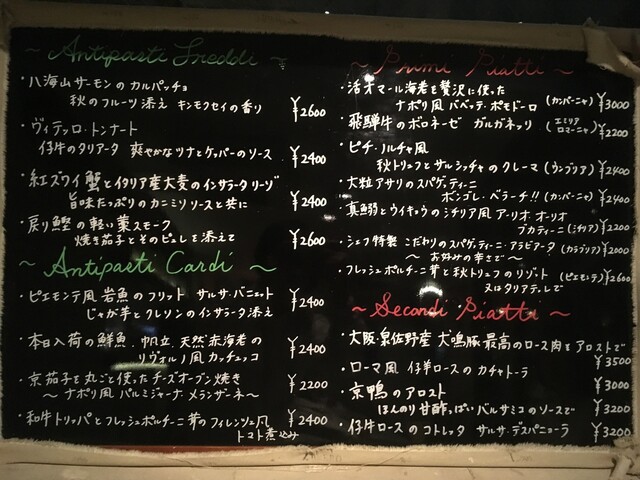 ~ Antipasti Freddi ~
・八海山サーモンの カルパッチョ
秋のフルーツ添え キンモクセイの香り ¥2600
・ヴィテッロ・トンナート
仔牛のタリアータ 爽やかなツナとケッパーのソース ¥2400
・紅ズワイ蟹とイタリア産大麦のインサラータ・リーゾ
旨味たっぷりのカニミソ ソースと共に ¥2400
・戻り鰹の軽い藁スモーク
焼き茄子とそのピュレを添えて ¥2600
~ Antipasti Cardi ~
・ピエモンテ風 岩魚のフリット サルサ・バニェット
じゃが芋とクレソンのインサラータ添え ¥2400
・本日入荷の鮮魚、帆立、天然赤海老の
リヴォルノ風 カッチュッコ ¥2400
・京茄子を丸ごと使ったチーズオーブン焼き
～ナポリ風 パルミジャーナ メランザーネ～ ¥2200
・和牛トリッパとフレッシュポルチーニ茸のフィレンツェ風
トマト煮込み ¥2400
~ Primi Piatti ~
・活オマール海老を贅沢に使った
ナポリ風 バベッテ・ポモドーロ (カンパーニャ) ¥3000
・飛騨牛のボロネーゼ ガルガネッリ (エミリア ロマーニャ) ¥2200
・ピチ・ノルチャ風
秋トリュフとサルシッチャのクレーマ (ウンブリア) ¥2400
・大粒アサリのスパゲッティーニ
ボンゴレ・ベラーチ!! (カンパーニャ) ¥2400
・真鰯とウイキョウのシチリア風 アーリオ オーリオ
ブカティーニ (シチリア) ¥2200
・シェフ特製 こだわりのスパゲッティーニ・アラビアータ (カラブリア) ¥2000
～お好みの辛さで～
・フレッシュポルチーニ茸と秋トリュフのリゾット (ピエモンテ) ¥2600
又はタリアテッレで
~ Secondi Piatti ~
・大阪・泉佐野産 犬鳴豚 最高のロース肉をアロストで
¥3500
・ローマ風 仔羊ロースのカチャトーラ ¥3000
・京鴨のアロスト
ほんのり甘酢っぱいバルサミコのソースで ¥3200
・仔牛ロースのコトレッタ サルサ・デスパニョーラ ¥3200